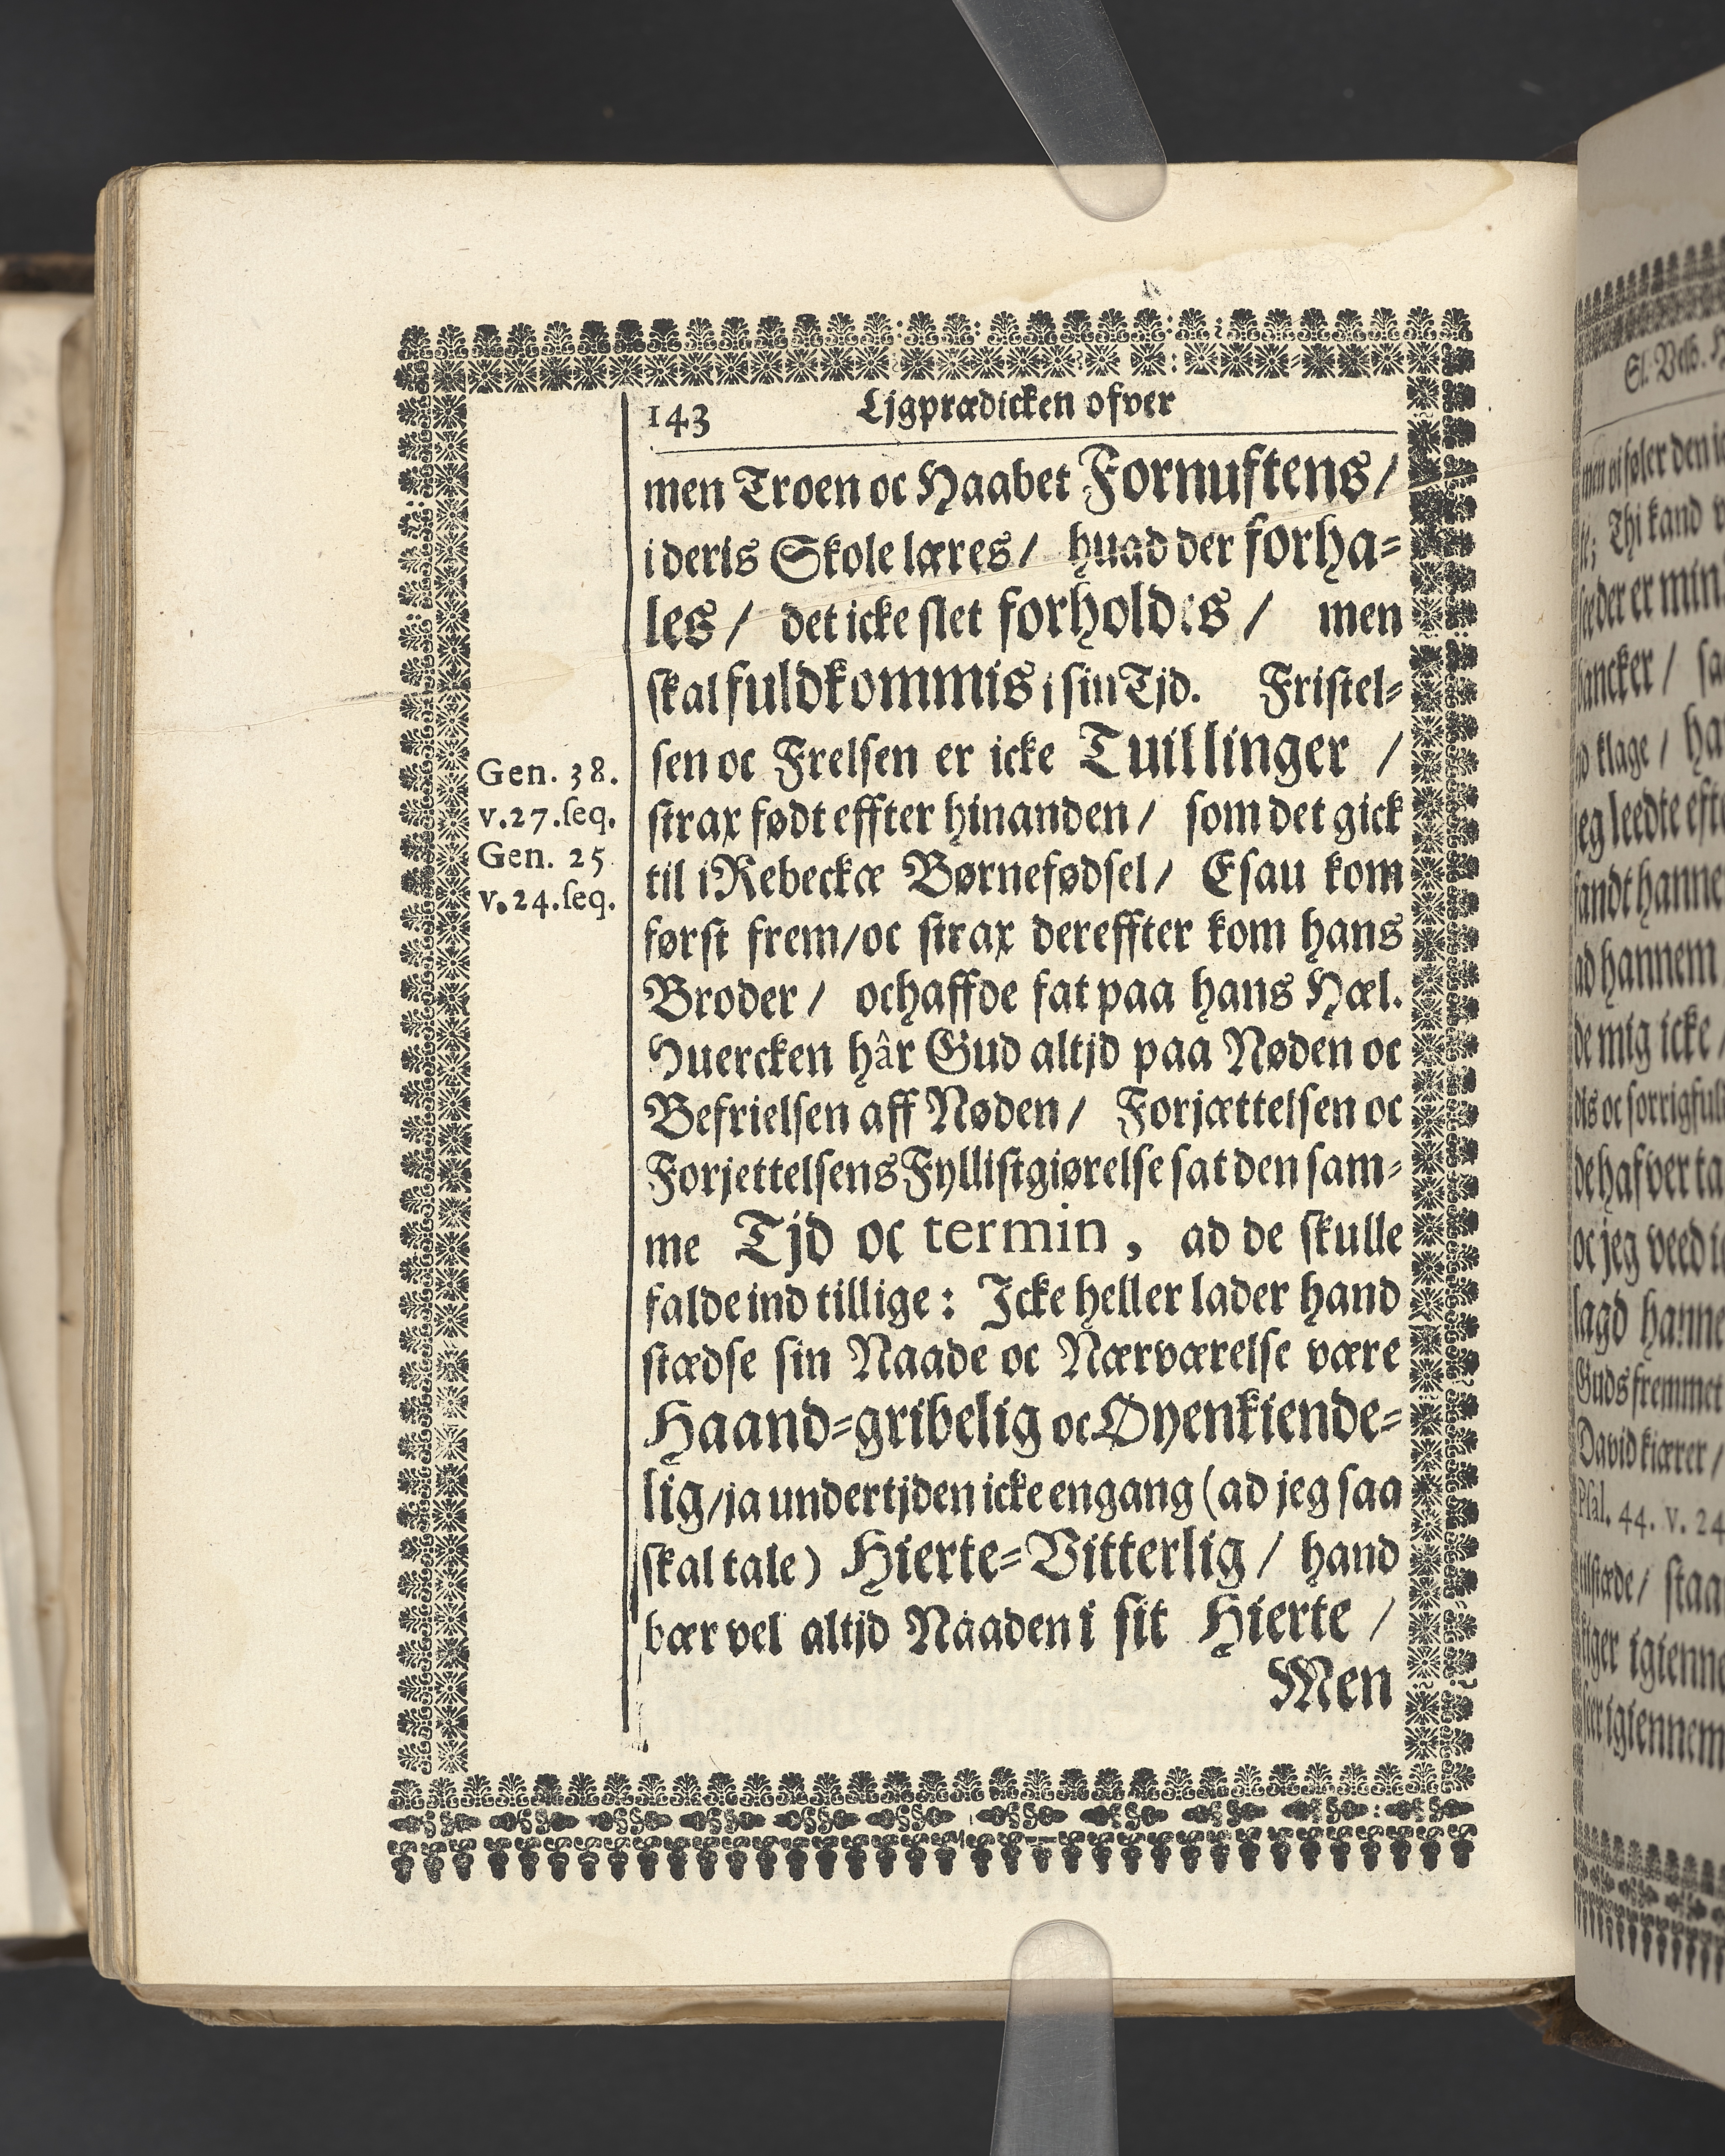 143 Ljgprædicken ofver
men Troen oc Haabet Fornuftens /
i deris Skole læres / huad der forha=
les / det icke slet forholdes / men
skal fuldkommis i sin Tjd. Fristel=
sen oc Frelsen er icke Tuillinger /
Gen. 38.
v.27.seq.
Gen. 25
v.24.seq.
strax født effter hinanden / som det gick
til i Rebeckæ Børnefødsel / Esau kom
først frem / oc strax dereffter kom hans
Broder / oc haffde fat paa hans Hæl.
Huercken hâr Gud altjd paa Nøden oc
Befrielsen aff Nøden / Forjættelsen oc
Forjettelsens Fyllistgiørelse sat den sam=
me Tjd oc termin, ad de skulle
falde ind tillige : Icke heller lader hand
stædse sin Naade oc Nærværelse være
Haand=gribelig oc Øyenkiende=
lig / ja undertjden icke engang (ad jeg saa
skal tale) Hierte=Vitterlig / hand
bær vel altjd Naaden i sit Hierte /
Men
Sl. Velb.
men vi føler den
Thi kand
der er min
klage /
jeg leedte
hannem
de mig icke
oc sorrigfuld
oc jeg veed
Guds
David kiærer /
Psal. 44. v. 24
igienne
igiennem